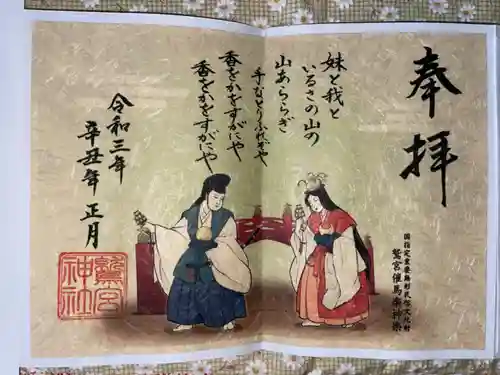 奉拝
国指定重要無形民俗文化財
鷲宮催馬楽神楽
妹と我と
いるさの山の
山あららぎ
手なとりふれそや
香をかをすがにや
香をかをすがにや
令和三年
辛丑年 正月
鷲宮
神社